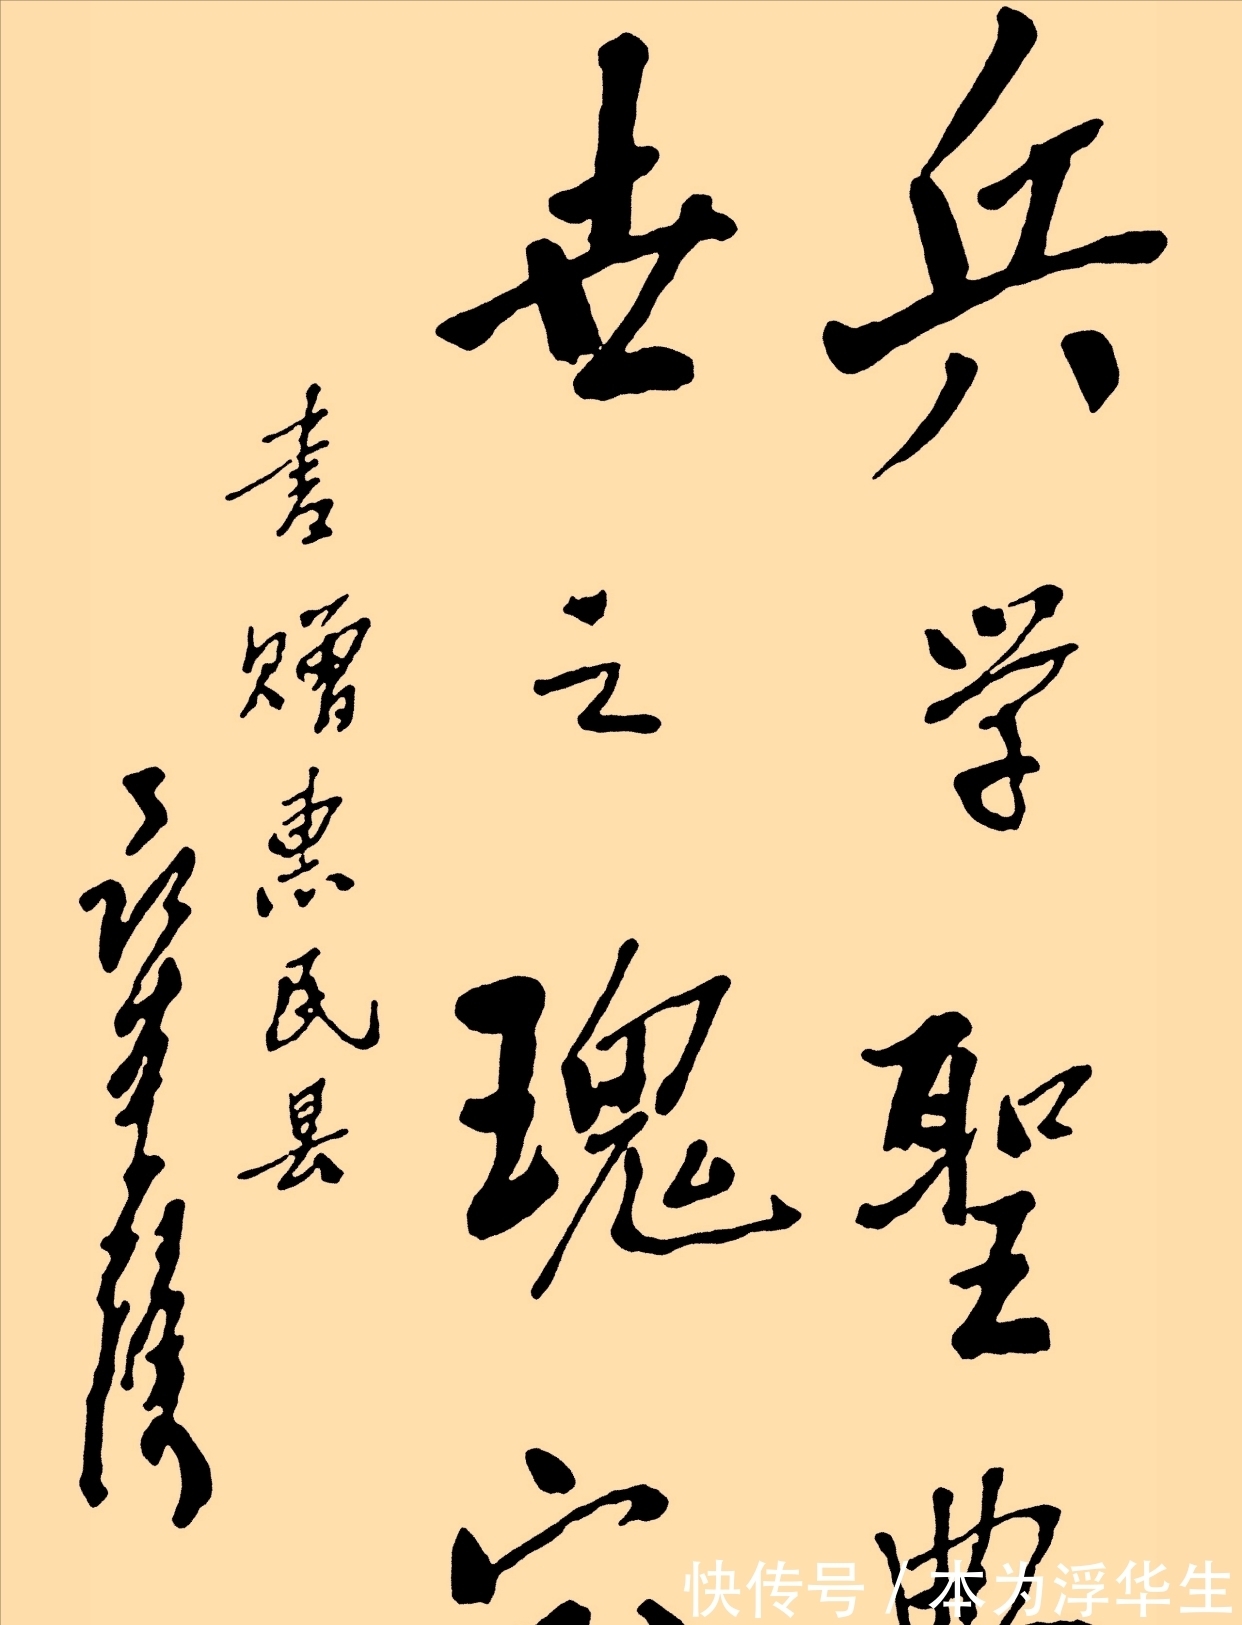 兵学聖典
世之瑰
书赠惠民县
快传号 / 本为浮华生